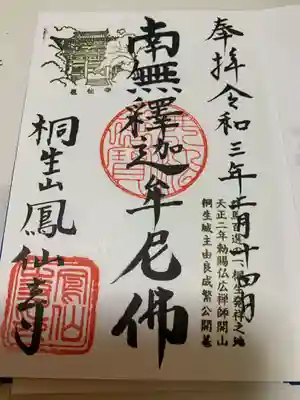 奉拝令和三年二月十四日
桐生発祥之地
天正二年勅賜仏広禅師開山
桐生城主由良成繁公開基
南無釋迦牟尼佛
桐生山鳳仙寺